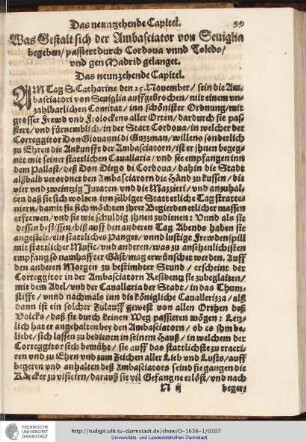 Das neunzehende Capitel. 99
Was Gestalt sich der Ambasciator von Seuiglia
begeben/ passiert durch Cordoua vnnd Toledo/
vnd gen Madrid gelanget.
Das neunzehende Capitel.
AM Tag S. Catharine den 25. Nouember/ sein die Am-
basciatori von Seuiglia auffgebrochen/ mit einem vn-
zahlbarlichen Comitat/ inn schönister Ordnung/ mit
grosser Frewd vnd Frolockens aller Orten/ dardurch sie pas-
siert/ vnd fürnemblich/ in der Statt Cordoua/ in welcher der
Correggitor Don Giouanni di Guzman/ willens sonderlich
zu Ehren die Ankunfft der Ambasciatorn/ ist er jhnen begegne
mit seiner stattlichen Cauallaria/ vnd sie empfangen inn
dem Pallast/ deß Don Diego di Cordoua/ dahin die Stadt
alßbald verordnet den Ambasciatorn die Händ zu küssen/ die
vier vnd zwentzig Juraten vnd die Mazzieri/ vnd anzuhal-
ten daß sie sich wolten inn selbiger Statt etliche Tag
damit sie sich möchten jhrer Begierden etlicher massen
erfrewen/ vnd sie wie schuldig jhnen zudienen: Vnnd als sie
dessen biß auff den anderen Tag Abends haben sie
angestelt/ ein stattliches Panget/ vnnd lustige Frewdenspill
mit stattlicher Music/ vnd anderen/ was zu ansehenlichisten
empfang so namhaffter Gäst/ mag erwünschet werden. Auff
den anderen Morgen zu bestimbter Stund/ erscheint der
Corregitor in der Ambasciatorn Residentz sie zubegleiten/
mit dem Adel/ vnd der Cauallaria der Stadt/ in das Thum-
stifft/ vnnd nachmals inn die königliche Cauallerizza/ alß
dann ist ein solcher Zulauff gewest von allen Orthen deß
Volcks/ daß sie durch keinen Weg passieren mögen: Letz-
lich hat er angehalten bey den Ambasciatorn/ ob es jhm be-
liebe/ sich lassen zu bedienen in seinem Hauß/ in welchem der
Corregitor sich bemühte/ sie auff das stattlichiste zu tracti-
ren/ vnd zu Ehren vnd zum Zeichen aller Lieb vnd Lusts/ auff
begeren vnd anhalten deß Ambasciatorn seind sie gangen die
Kärcker zu visitiern/ darauß sie vil Gefangne erlöst/ vnd nach
N ij begers
TECHNISCHE
UNIVERSITÄT
DARMSTADT
http://tudigit.ulb.tu-darmstadt.de/show/G-1636-1/0107
Universitäts- und Landesbibliothek Darmstadt